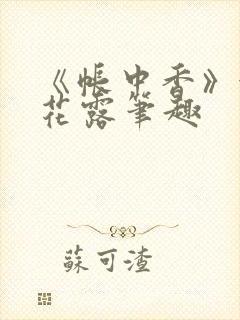 《帐中香》
花露笔趣
蘇可渣